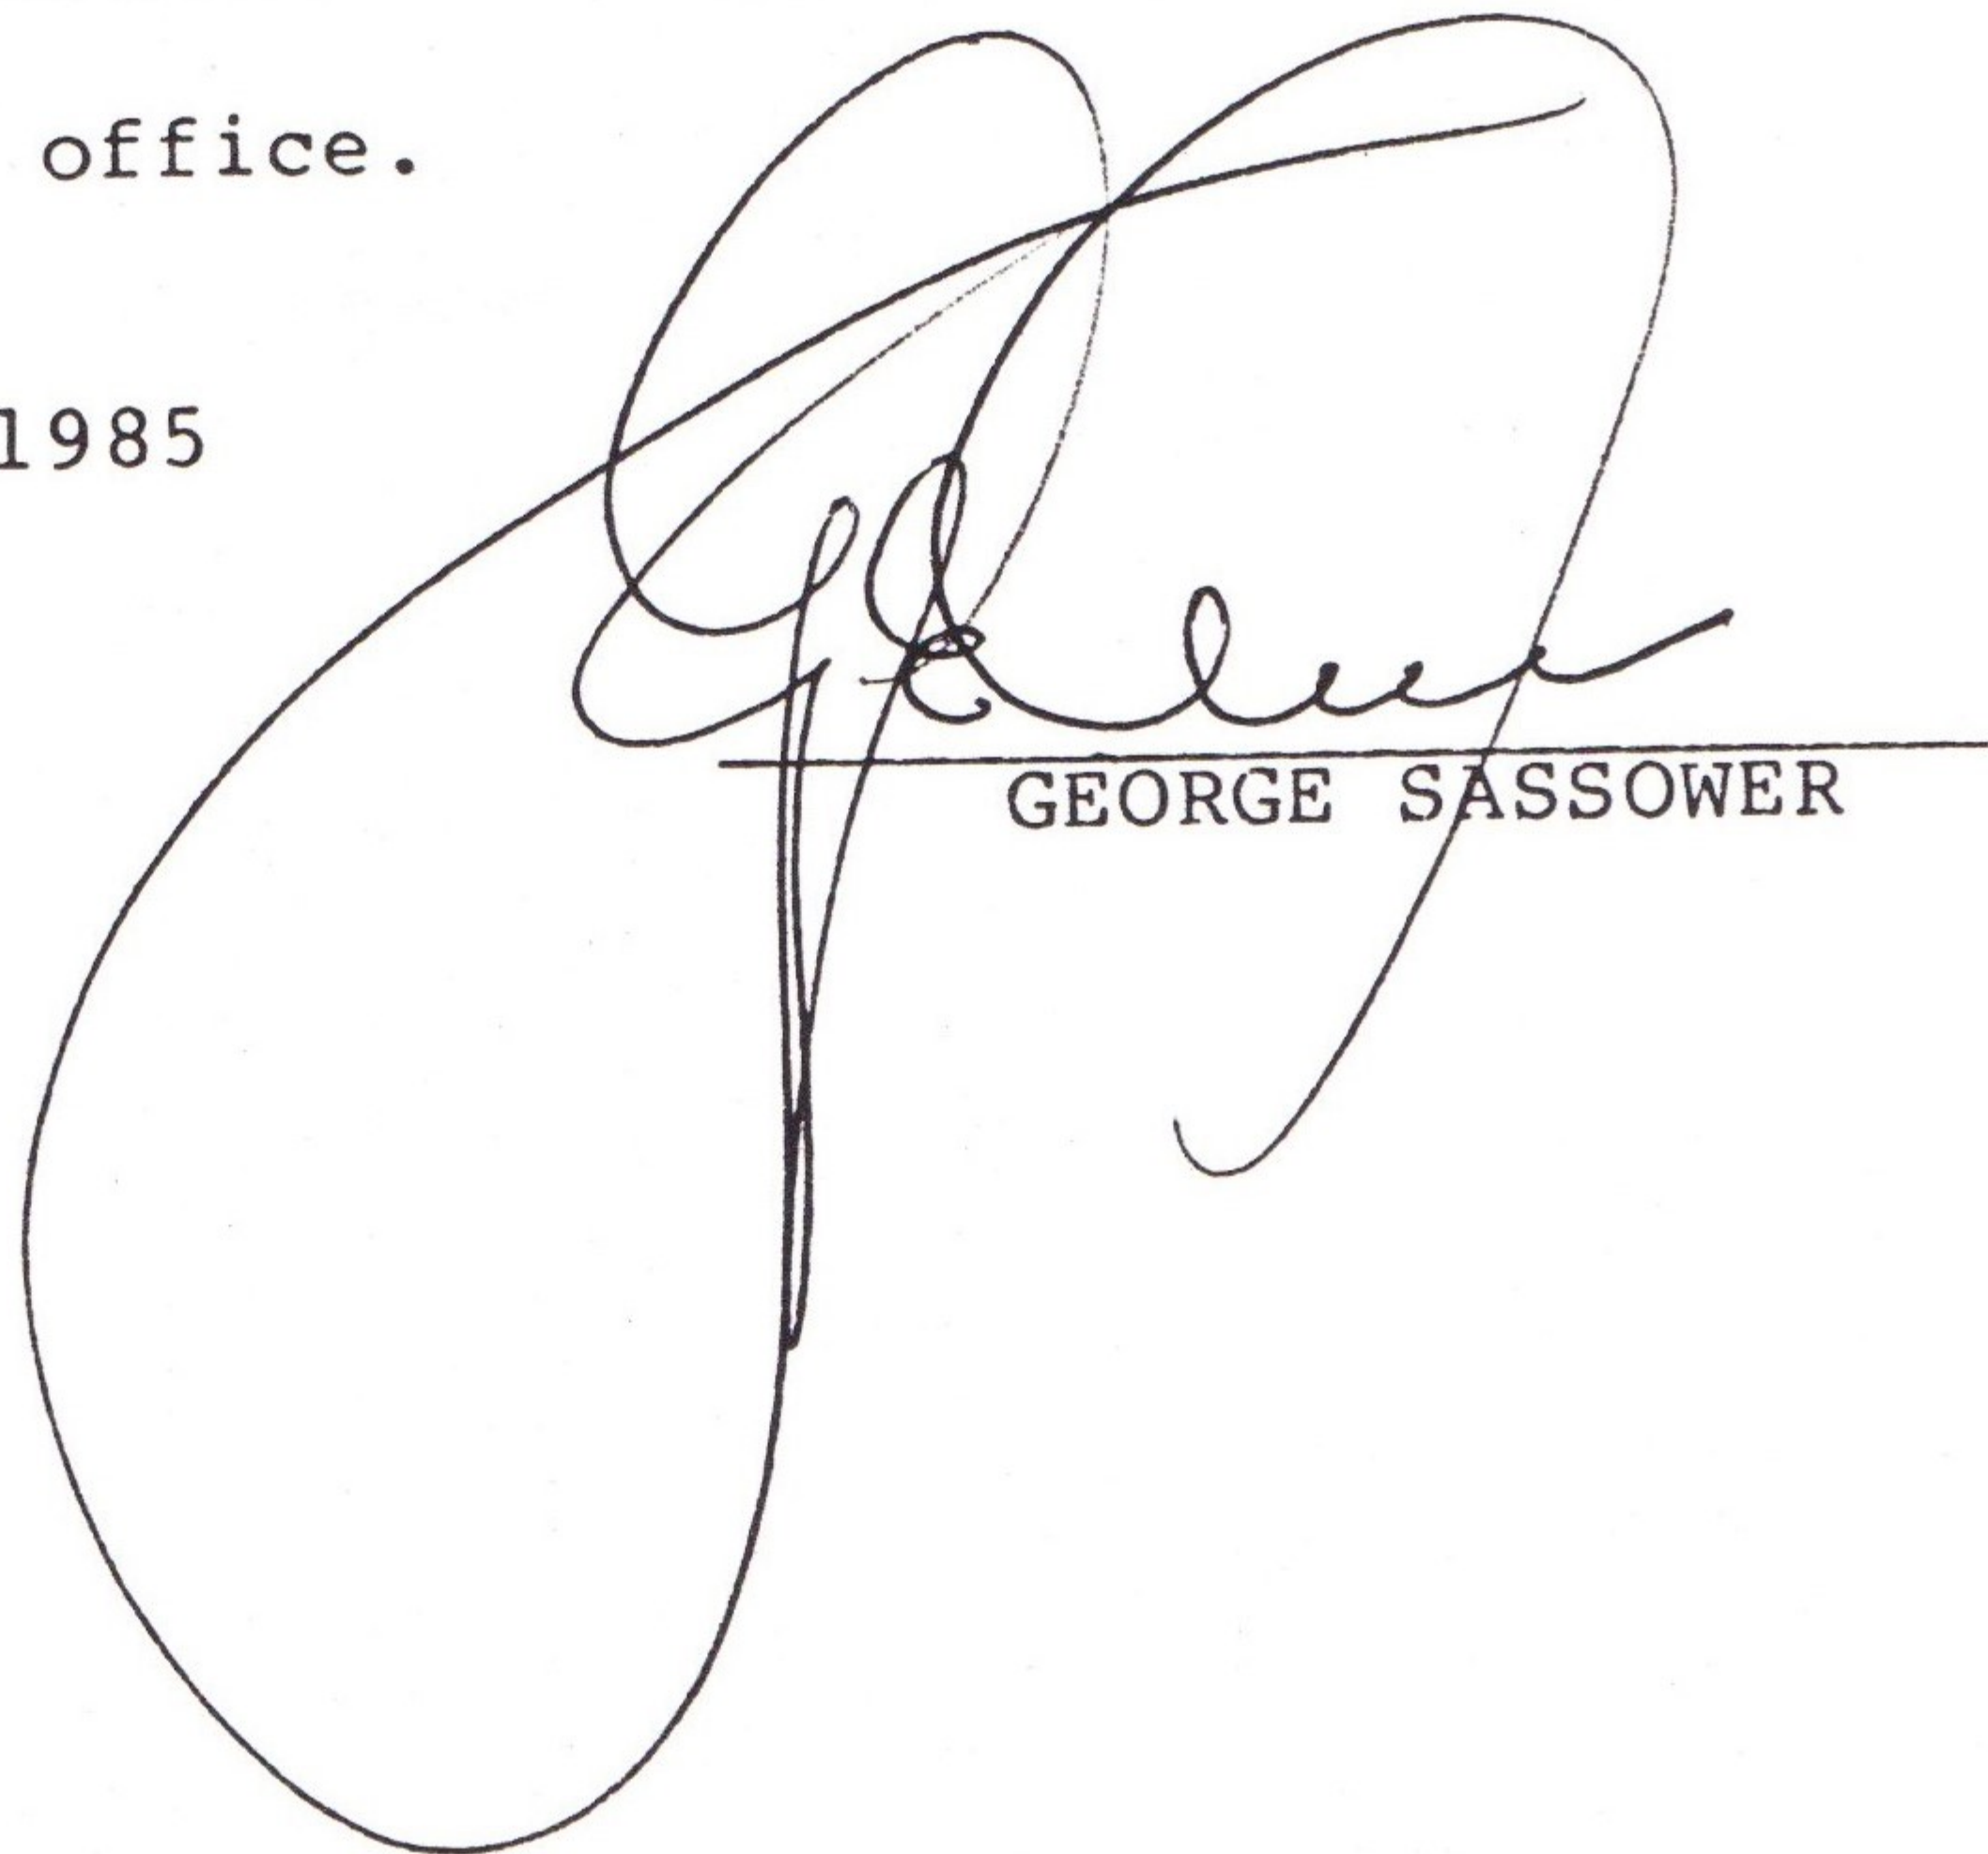 office.
1985
GEORGE SASSOWER